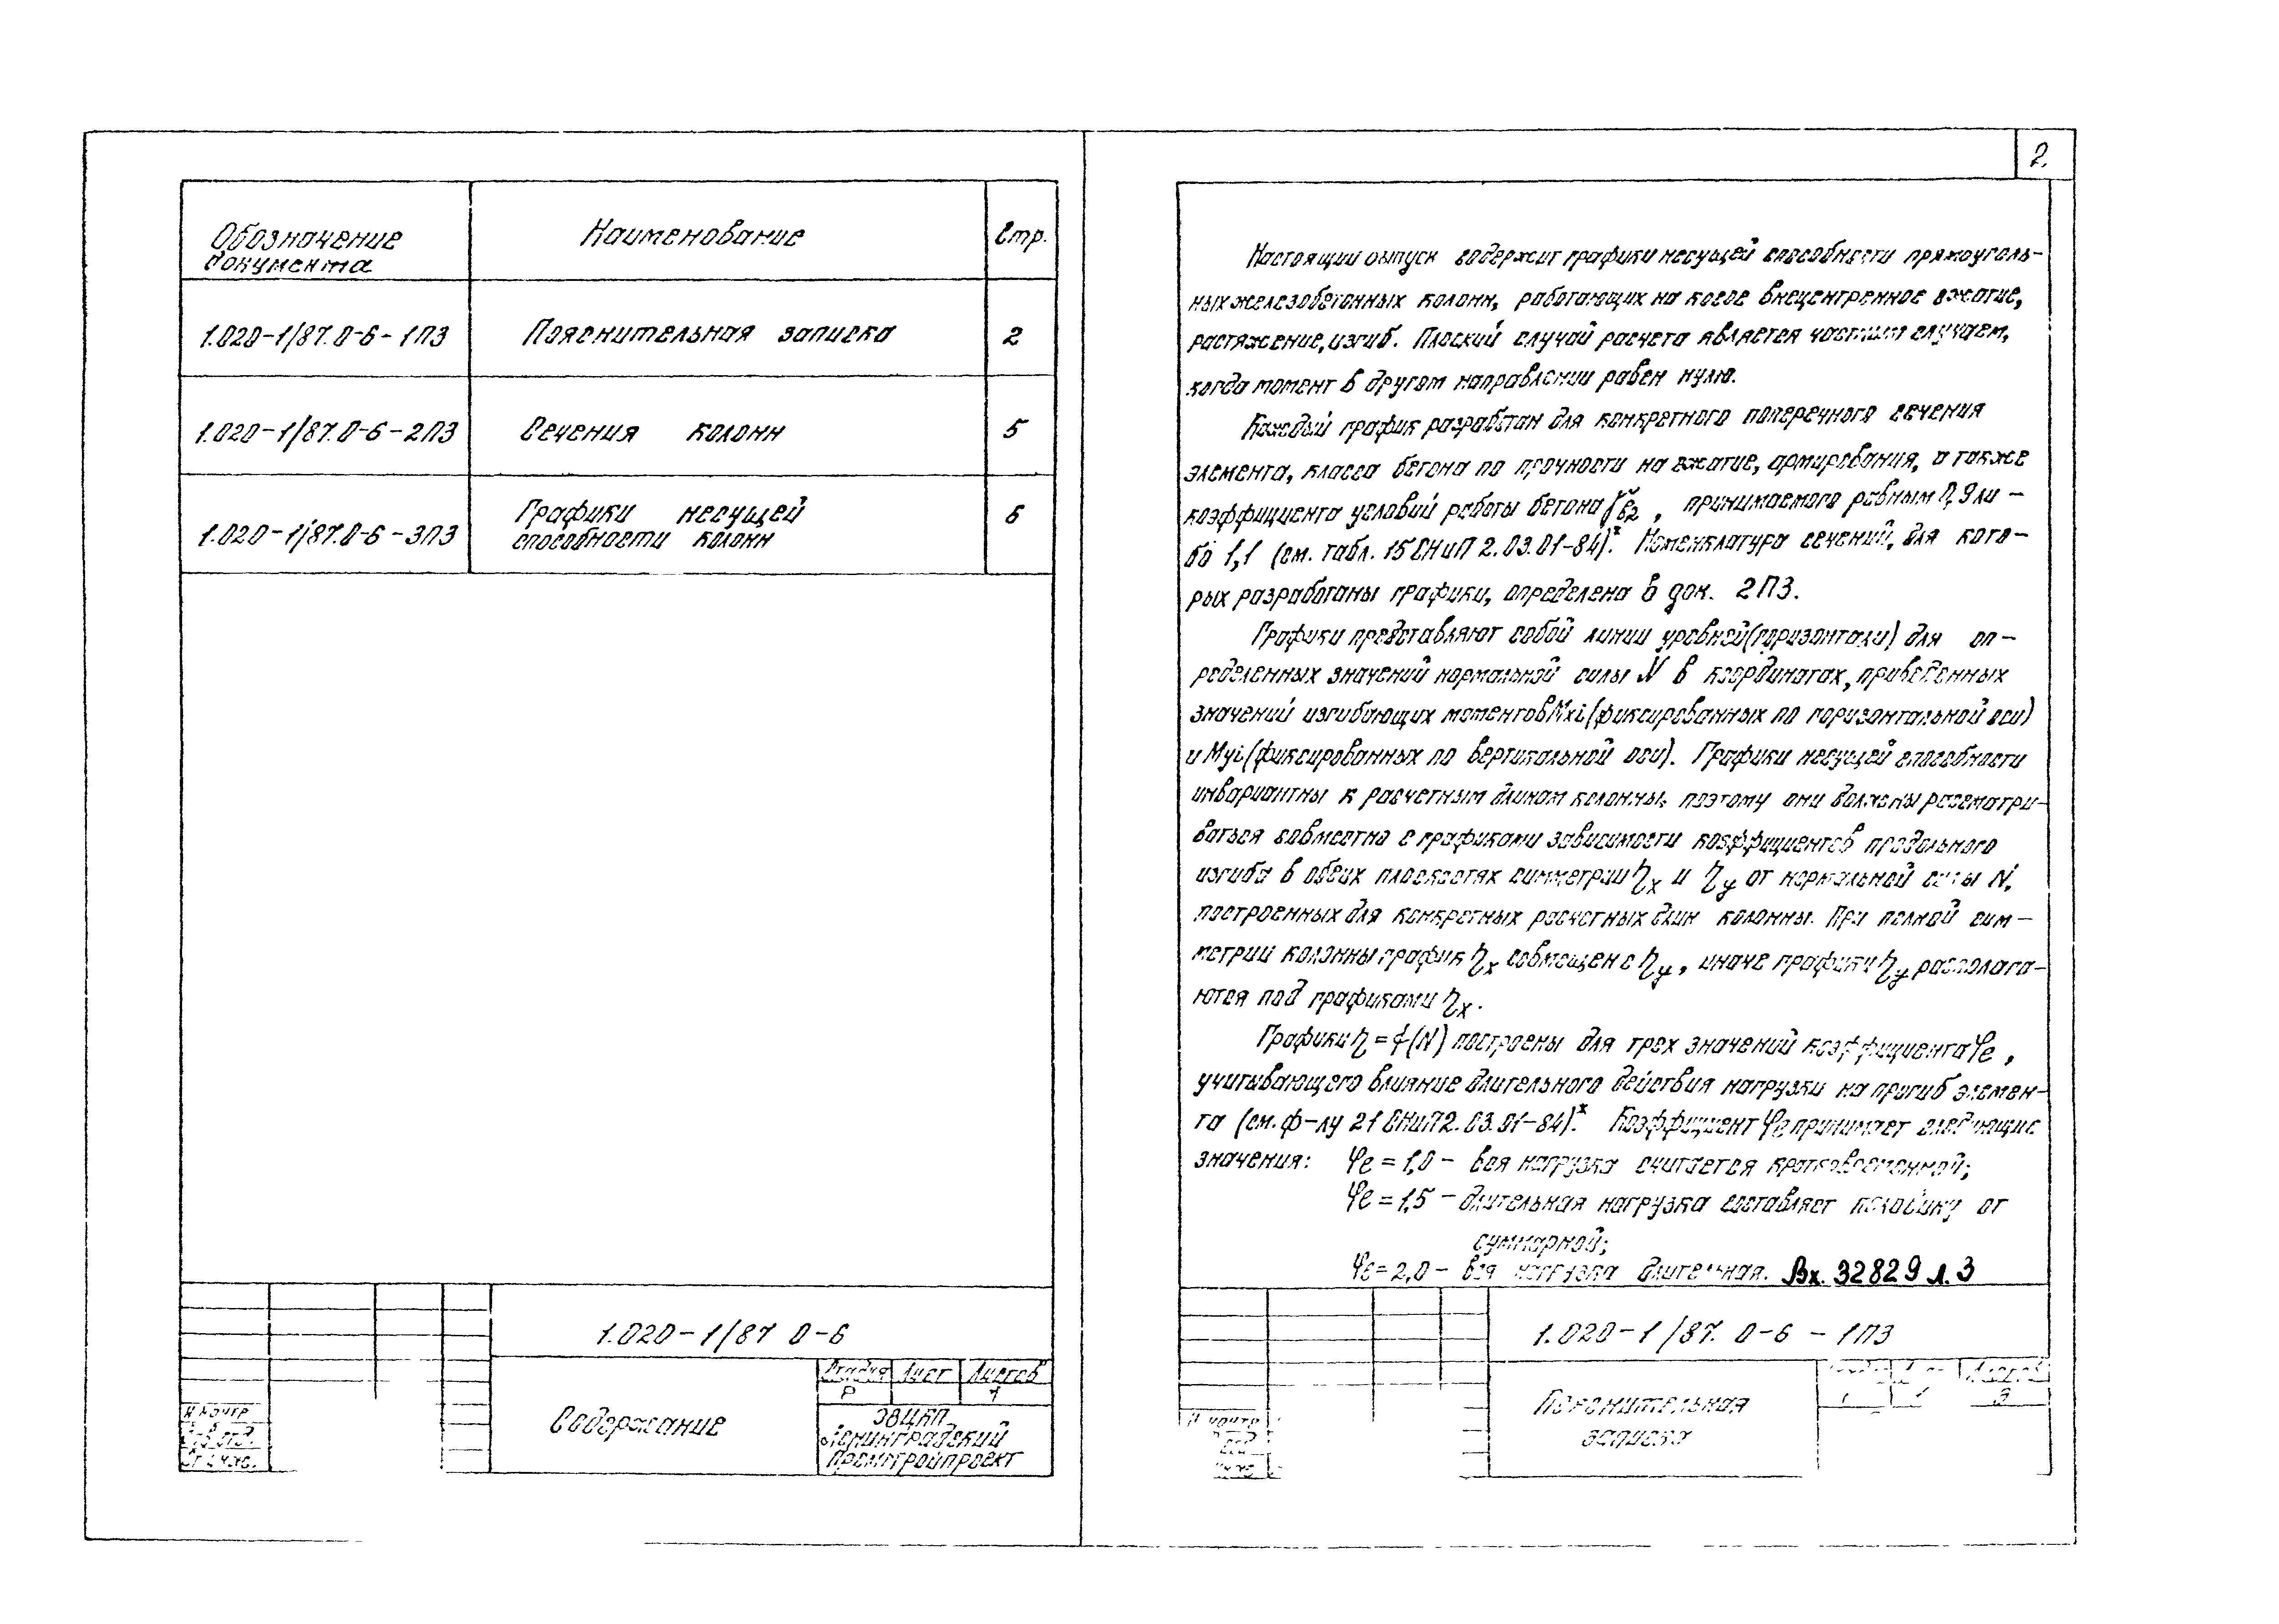 Обозначение
документа
Наименование
Стр.
1.020-1/87.0-6-1ПЗ
Пояснительная записка
2
1.020-1/87.0-6-2ПЗ
Сечения колонн
5
1.020-1/87.0-6-3ПЗ
Графики несущей
способности колонн
6
1.020-1/87 0-6
Содержание
Стадия Лист Листов
Р 1
Ленинградский
Промстройпроект
Н контр
2.
Настоящий выпуск содержит графики несущей способности прямоуголь-
ных железобетонных колонн, работающих на косое внецентренное сжатие,
растяжение, изгиб. Плоский случай расчета является частным случаем,
когда момент в другом направлении равен нулю.
Каждый график разработан для конкретного поперечного сечения
элемента, класса бетона по прочности на сжатие, армирования, а также
коэффициента условий работы бетона γв2, принимаемого равным 0,9 ли-
бо 1,1 (см. табл. 15 СНиП 2.03.01-84)*. Номенклатура сечений, для кото-
рых разработаны графики, определена в док. 2ПЗ.
Графики представляют собой линии уровней (горизонтали) для оп-
ределенных значений нормальной силы N в координатах, приведенных
значений изгибающих моментов Mxi (фиксированных по горизонтальной оси)
и Myi (фиксированных по вертикальной оси). Графики несущей способности
инвариантны к расчетным длинам колонны, поэтому они должны рассматри-
ваться совместно с графиками зависимости коэффициентов продольного
изгиба в обеих плоскостях симметрии ηx и ηy от нормальной силы N,
построенных для конкретных расчетных длин колонны. При полной сим-
метрии колонны график ηx совмещен с ηy, иначе графики ηy располага-
ются под графиками ηx.
Графики η = f(N) построены для трех значений коэффициента φe,
учитывающего влияние длительного действия нагрузки на прогиб элемен-
та (см. ф-лу 21 СНиП 2.03.01-84)*. Коэффициент φe принимает следующие
значения: φe = 1,0 - вся нагрузка считается кратковременной;
φe = 1,5 - длительная нагрузка составляет половину от
суммарной;
φe = 2,0 - вся нагрузка длительная. Вх. 32829 л. 3
1.020-1/87. 0-6 - 1ПЗ
Пояснительная
записка
Листов
3
Н контр